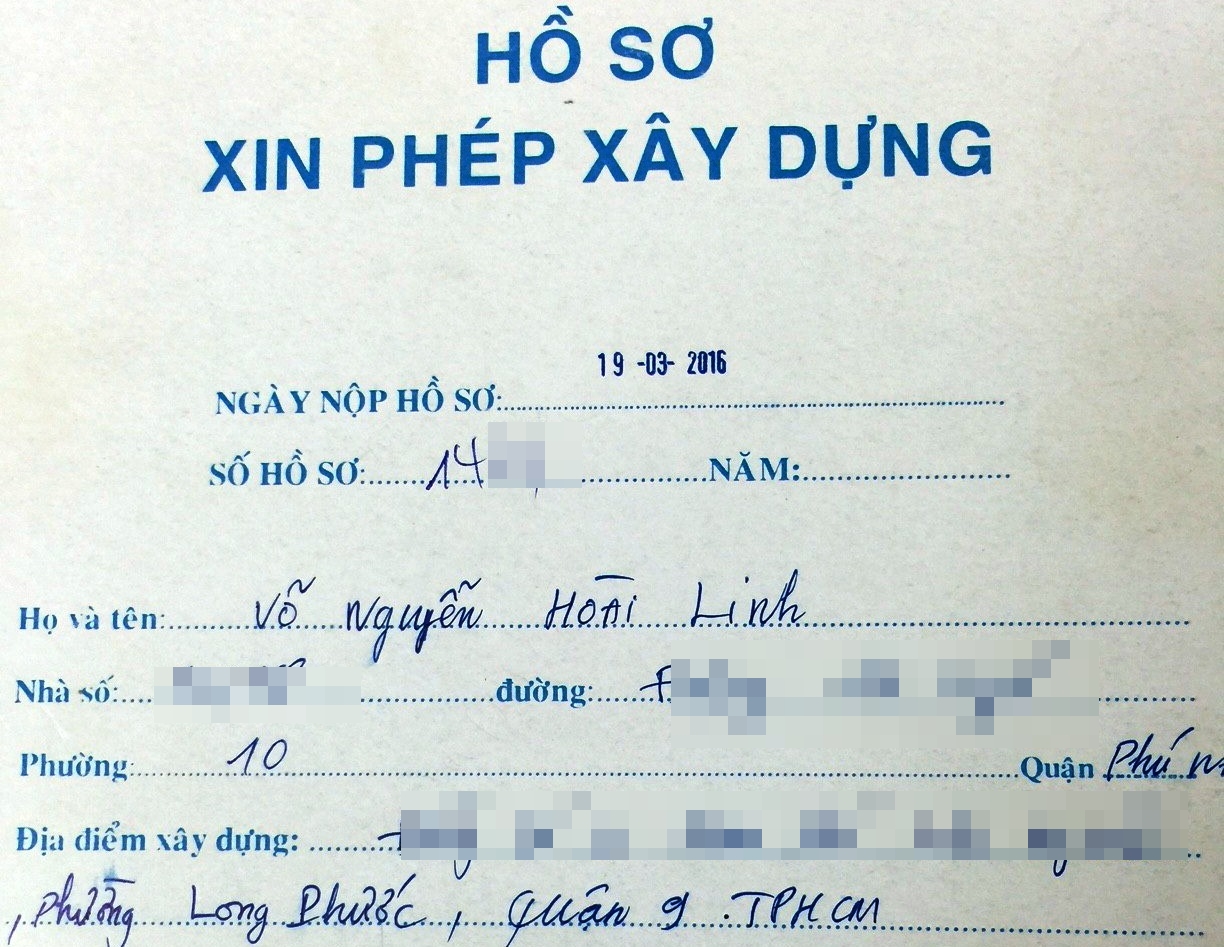 HỒ SƠ
XIN PHÉP XÂY DỰNG
19 -03- 2016
NGÀY NỘP HỒ SƠ:
SỐ HỒ SƠ: 14 NĂM:
Họ và tên: Võ Nguyễn Hoài Linh
Nhà số: đường:
Phường: 10 Quận Phú
Địa điểm xây dựng:
, Phường Long Phước, Quận 9 . TPHCM